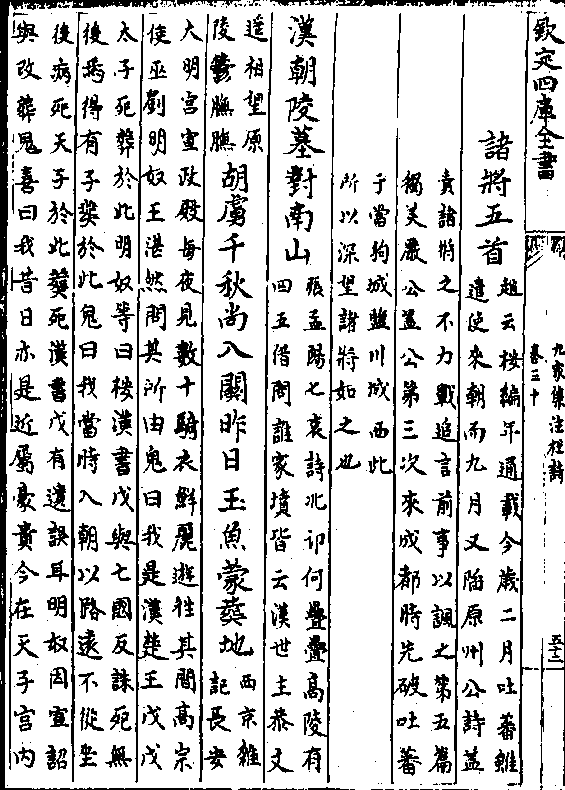 欽定四庫全書
九家集注杜詩
卷三十
諸將五首
趙云按編年通載今歲二月吐蕃雖
遣使來朝而九月又陷原州公詩蓋
責諸將之不力戰追言前事以諷之第五篇
獨美嚴公蓋公第三次來成都時先破吐蕃
于當狗城鹽川城西此
所以深望諸將如之也
漢朝陵墓對南山
張孟陽七哀詩北卬何疊疊高陵有
四五借問誰家墳皆云漢世主恭文
遥相望原
陵鬱膴膴
胡虜千秋尚入關昨日玉魚蒙葬地
西京雜
記長安
大明宮宣政殿每夜見數十騎衣鮮麗遊往其間高宗
使巫劉明奴王湛然問其所由鬼曰我是漢楚王戊戊
太子死葬於此明奴等曰按漢書戊與七國反誅死無
後焉得有子葬於此鬼曰我當時入朝以路遠不從坐
後病死天子於此葬死漢書戊有遺誤耳明奴因宣詔
與改葬鬼喜曰我昔日亦是近屬豪貴今在天子宮內